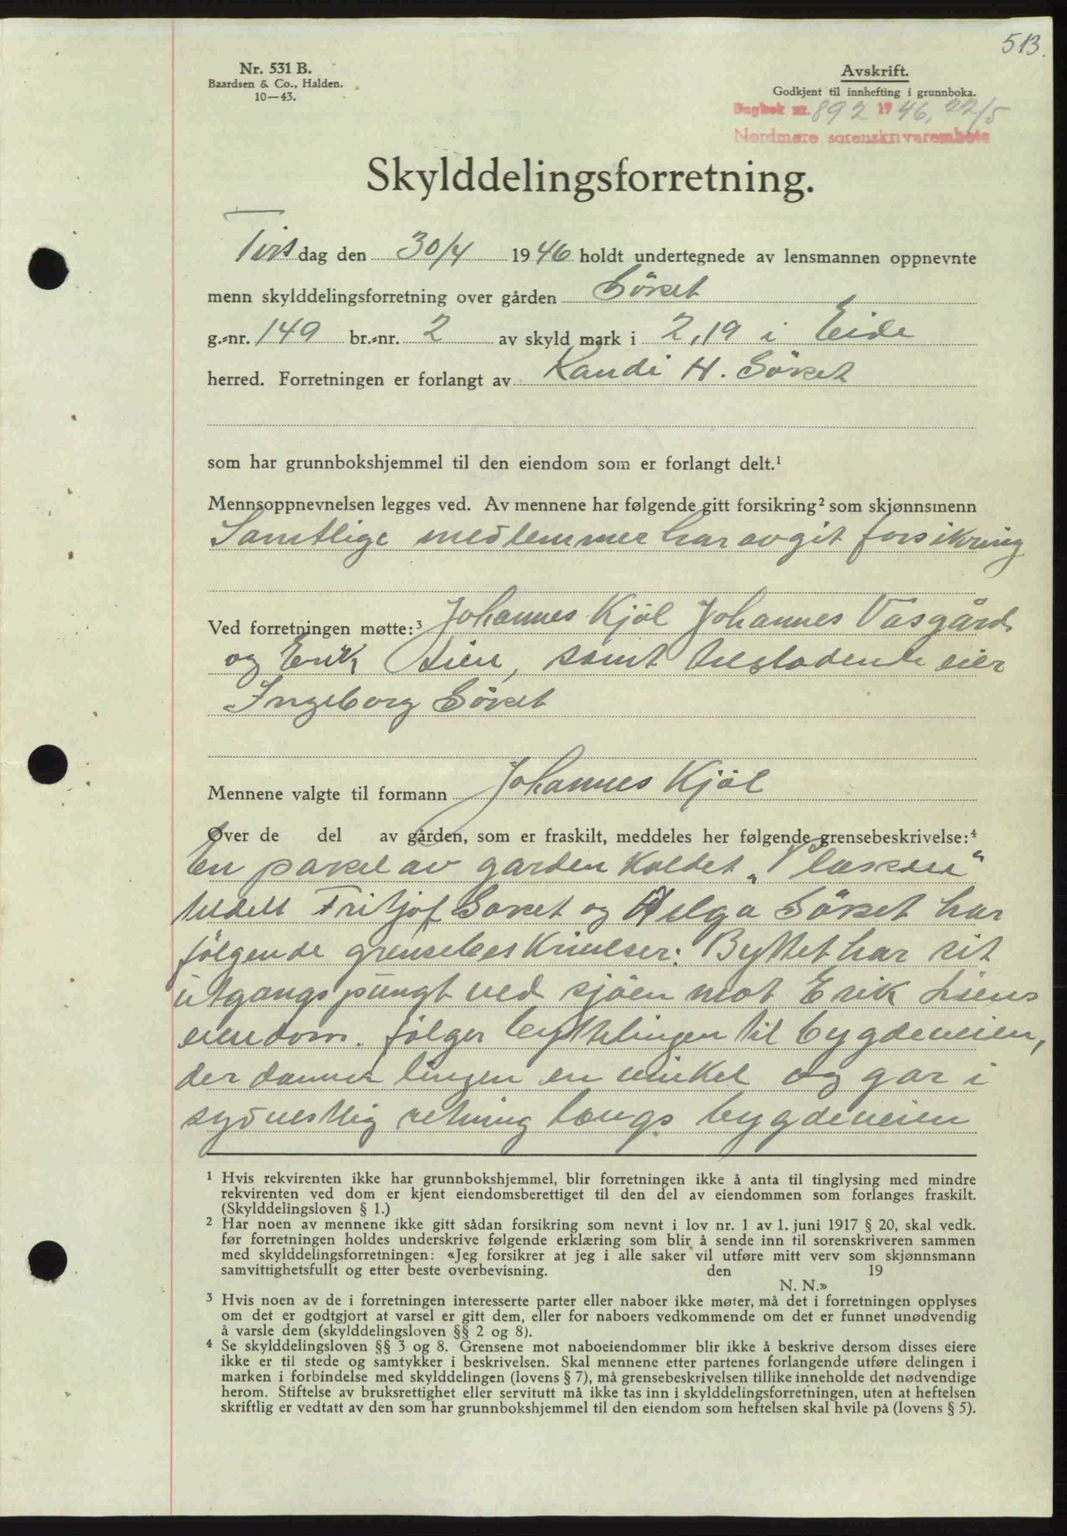 513.
Nr. 531 B.
Baardsen & Co., Halden.
10—43.
Avskrift.
Godkjent til innhefting i grunnboka.
Dagbok nr. 892 1946, 22/5
Nordmøre sorenskriverembete
Skylddelingsforretning.
Tirsdag den 30/4 1946 holdt undertegnede av lensmannen oppnevnte
menn skylddelingsforretning over gården Sövret
g.-nr. 149 br.-nr. 2 av skyld mark i 2,19 i Eide
herred. Forretningen er forlangt av Randi H. Sövret
som har grunnbokshjemmel til den eiendom som er forlangt delt.¹
Mennsoppnevnelsen legges ved. Av mennene har følgende gitt forsikring² som skjønnsmenn
Samtlige medlemmer har avgit forsikring
Ved forretningen møtte:³ Johannes Kjöl Johannes Vasgård
og Erik Lien, samt eier
Ingeborg Sövret
Mennene valgte til formann Johannes Kjöl
Over de del av gården, som er fraskilt, meddeles her følgende grensebeskrivelse:⁴
En parsel av garden kaldet „Plassen“
tildelt Fritjof Sövret og Helga Sövret har
følgende grensebeskrivelser: Byttet har sit
utgangspungt ved sjöen mot Erik Liens
eiendom. følger byttelingen til bygdeveien,
der danner lingen en vinkel og gar i
sydvestlig retning langs bygdeveien
¹ Hvis rekvirenten ikke har grunnbokshjemmel, blir forretningen ikke å anta til tinglysing med mindre
rekvirenten ved dom er kjent eiendomsberettiget til den del av eiendommen som forlanges fraskilt.
(Skylddelingsloven § 1.)
² Har noen av mennene ikke gitt sådan forsikring som nevnt i lov nr. 1 av 1. juni 1917 § 20, skal vedk.
før forretningen holdes underskrive følgende erklæring som blir å sende inn til sorenskriveren sammen
med skylddelingsforretningen: «Jeg forsikrer at jeg i alle saker vil utføre mitt verv som skjønnsmann
samvittighetsfullt og etter beste overbevisning. den 19
N. N.»
³ Hvis noen av de i forretningen interesserte parter eller naboer ikke møter, må det i forretningen opplyses
om det er godtgjort at varsel er gitt dem, eller for naboers vedkommende om det er funnet unødvendig
å varsle dem (skylddelingsloven §§ 2 og 8).
⁴ Se skylddelingsloven §§ 3 og 8. Grensene mot naboeiendommer blir ikke å beskrive dersom disses eiere
ikke er til stede og samtykker i beskrivelsen. Skal mennene etter partenes forlangende utføre delingen i
marken i forbindelse med skylddelingen (lovens § 7), må grensebeskrivelsen tillike inneholde det nødvendige
herom. Stiftelse av bruksrettighet eller servitutt må ikke tas inn i skylddelingsforretningen, uten at heftelsen
skriftlig er vedtatt av den som har grunnbokshjemmel til den eiendom som heftelsen skal hvile på (lovens § 5).